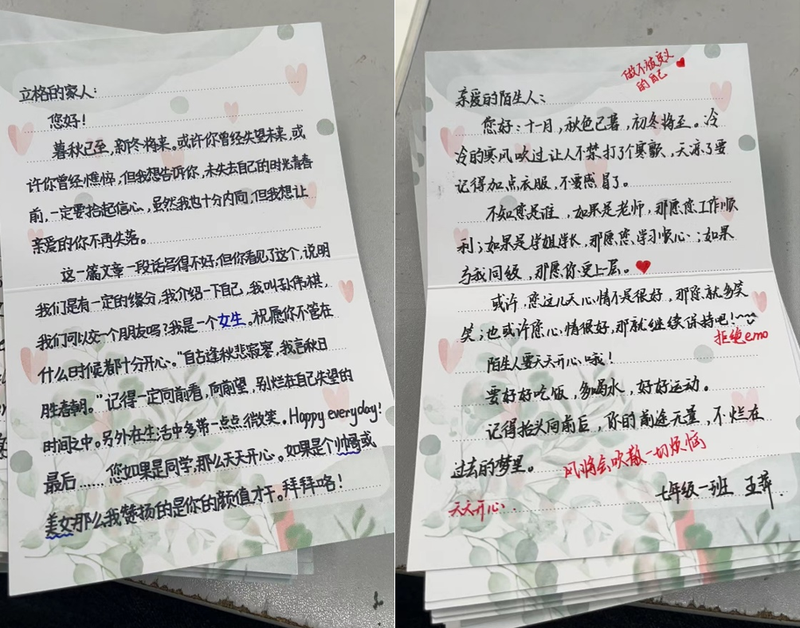 立格的家人：
您好！
暮秋已至，新冬将来。或许你曾经失望未来，或
许你曾经憔悴，但我想告诉你，未失去自己的时光青春
前，一定要拾起信心，虽然我也十分内向，但我想让
亲爱的你不再失落。
这一篇文章一段话写得不好，但你看见了这个，说明
我们是有一定的缘分，我介绍一下自己，我叫孙伟祺，
我们可以交一个朋友吗？我是一个女生。祝愿你不管在
什么时候都十分开心。“自古逢秋悲寂寥，我言秋日
胜春朝。”记得一定向前看，所向望，别烂在自己失望的
时间之中。另外在生活中多带一点点微笑。Happy everyday!
最后……您如果是同学，那么天天开心。如果是个帅哥或
美女那么我赞扬的是你的颜值才干。拜拜咯！
做不被定义
的自己
亲爱的陌生人：
您好：十一月，秋色已暮，初冬将至。冷
冷的寒风吹过让人不禁打了个寒颤，天凉了要
记得加点衣服，不要感冒了。
不知您是谁，如果是老师，那愿您工作顺
利；如果是学姐学长，那愿您学习顺心；如果
与我同级，那愿你更上一层。
或许，您这几天心情不是很好，那您就多笑
笑；也或许您心情很好，那就继续保持吧！~~
拒绝emo
陌生人要天天开心哦！
要好好吃饭，多喝水，好好运动。
记得抬头向前后，你的前途无量，不烂在
过去的梦里。 风将会吹散一切烦恼
七年级一班 王弈.
天天开心：.